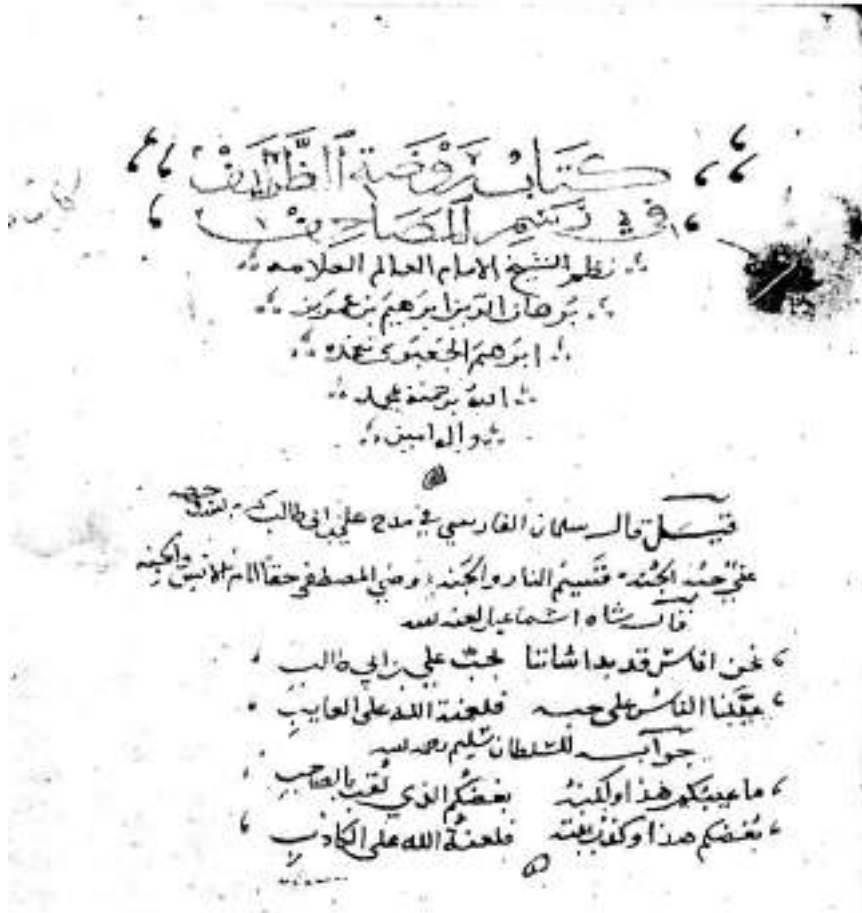 كتاب روضة الطرايف
في رسم المصاحف
نظم الشيخ الامام العالم العلامه
برهان الدين ابرهيم بن عمر بن
ابرهيم الجعبرى تغمده
الله برحمته بمحمد
واله امين
قيل قال سلمان الفارسي في مدح علي بن ابي طالب
علي حبه الجُنه قسيم النار والجنه وصي المصطفى حقا امام الانس والجنه
قال شاه اسماعيل لعنه الله
نحن اناس قد بدا شاننا بحب علي بن ابي طالب
عيبنا الناس على حبه فلعنة الله على العايب
جوابه للسلطان سليم رحمه الله
ما عيبكم هذا ولكنه بغضكم الذي لقب بالصاحب
بغضكم هذا وكذب فلعنة الله على الكاذب